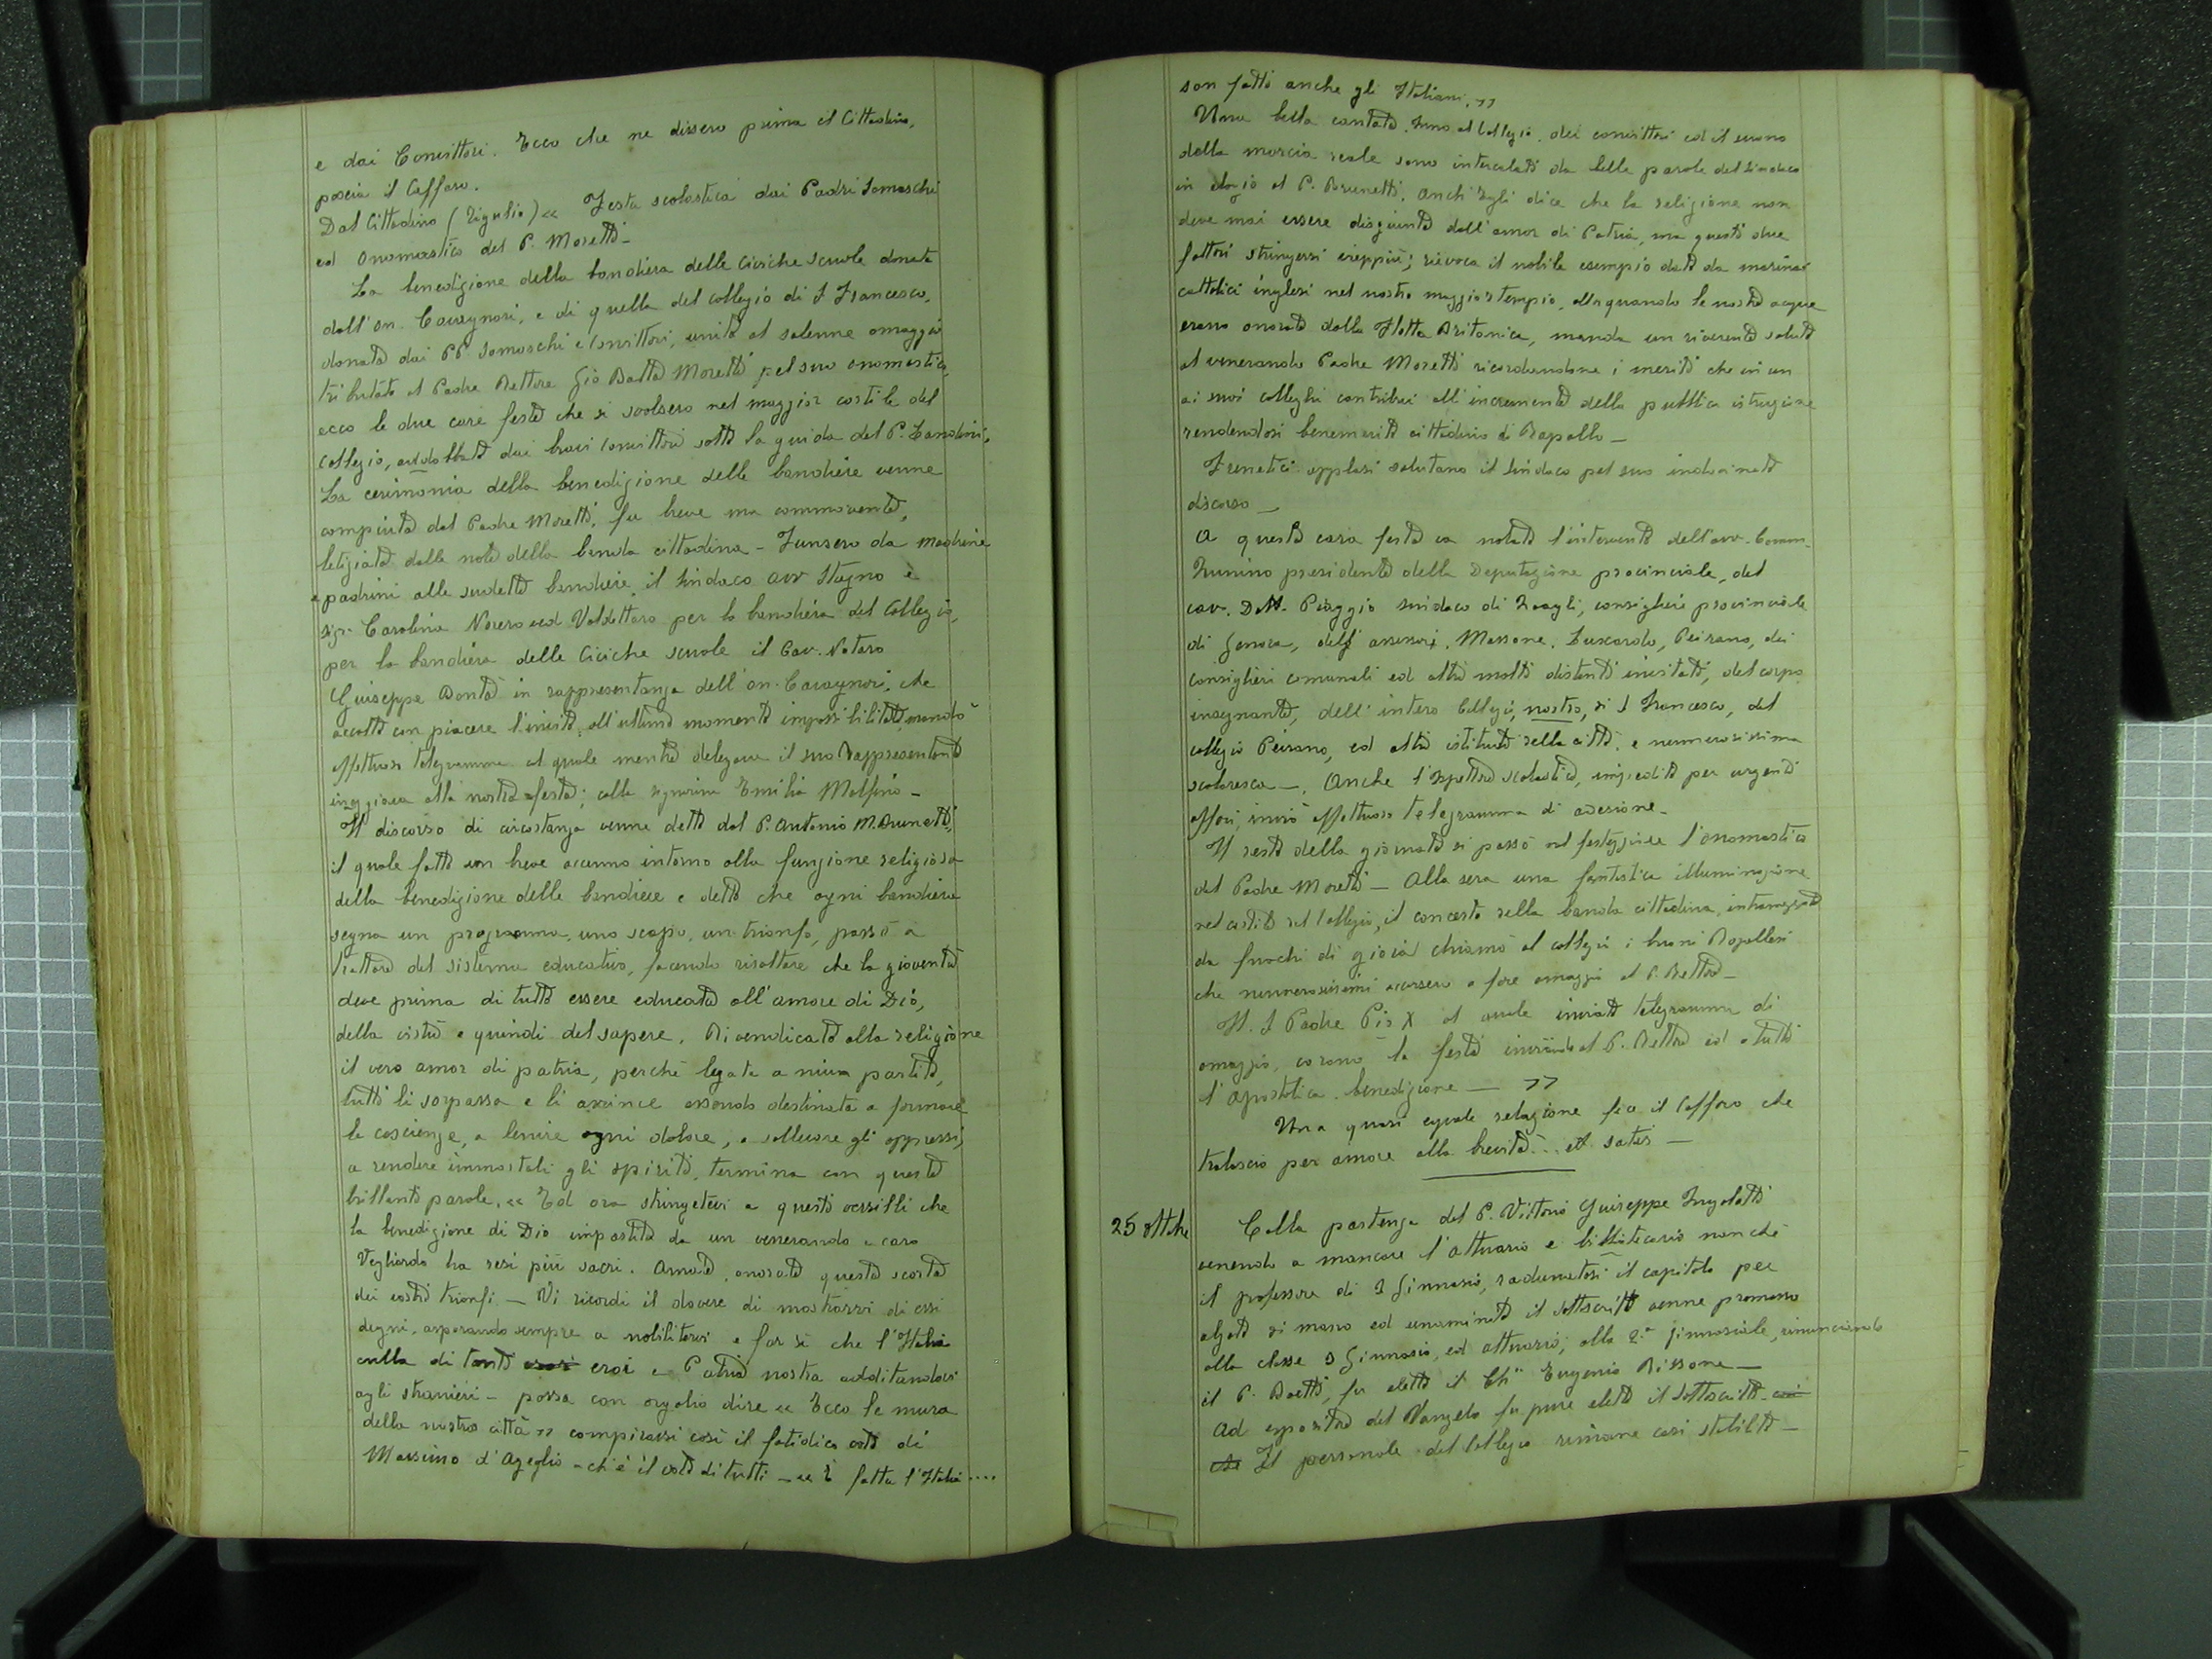 e dai Convittori. Ecco che ne dissero prima il Cittadino,
poscia il Caffaro.
Dal Cittadino (Tigulio) « Festa scolastica dai Padri Somaschi
ed Onomastico del P. Moretti -
La benedizione della bandiera delle Civiche scuole donata
dall'on. Cavagnari, e di quella del collegio di S Francesco,
donata dai PP. Somaschi e Convittori, unita al solenne omaggio
tributato al Padre Rettore Gio Batta Moretti pel suo onomastico,
ecco le due care feste che si svolsero nel maggior cortile del
Collegio, addobbato dai bravi Convittori sotto la guida del P. Landini.
La cerimonia della benedizione delle bandiere venne
compiuta dal Padre Moretti, fu breve ma commovente,
letiziata dalle note della banda cittadina - Funsero da madrine
e padrini alle sudette bandiere, il Sindaco avv Stagno e
sigr. Carolina Norero ved Valdettaro per la bandiera del Collegio,
per la bandiera delle Civiche scuole il Cav. Notaro
Giuseppe Bontà in rappresentanza dell'on. Cavagnari, che
accolto con piacere l'invito, all'ultimo momento impossibilitato, mandò
affettuoso telegramma al quale mentre delegava il suo Rappresentante
inneggiava alla nostra festa; colla signorina Emilia Molfino -
Il discorso di circostanza venne detto dal P. Antonio M. Brunetti,
il quale fatto un breve accenno intorno alla funzione religiosa
della benedizione delle bandiere e detto che ogni bandiera
segna un programma, uno scopo, un trionfo, passò a
trattare del sistema educativo, facendo risaltare che la gioventù
deve prima di tutto essere educata all'amore di Dio,
della virtù e quindi del sapere. Rivendicato alla religione
il vero amor di patria, perchè legata a niun partito,
tutti li sorpassa e li avvince essendo destinata a formare
le coscienze, a lenire ogni dolore, a sollevare gli oppressi,
a rendere immortali gli spiriti, termina con queste
brillanti parole. « Ed ora stringetevi a questi vessilli che
la benedizione di Dio impartita da un venerando e caro
Vegliardo ha resi più sacri. Amate, onorate questa scorta
dei vostri trionfi - Vi ricordi il dovere di mostrarvi di essi
degni, asporando sempre a nobilitarvi e far sì che l'Italia
culla di tanti eroi e Patria nostra additandovi
agli stranieri - possa con orgoglio dire « Ecco le mura
della nostra città » compirassi così il fatidico voto di
Massimo d'Azeglio - ch'è il voto di tutti - « È fatta l'Italia ....
son fatti anche gli Italiani. »
Una bella cantata, Inno al Collegio, dei convittori ed il suono
della marcia reale sono intercalati da belle parole del Sindaco
in elogio al P. Brunetti. Anch'Egli dice che la religione non
deve mai essere disgiunta dall'amor di Patria, ma questi due
fattori stringersi vieppiù; rievoca il nobile esempio dato da marinai
cattolici inglesi nel nostro maggior tempio, allorquando le nostre acque
erano onorate dalla Flotta Britanica, manda un riverente saluto
al venerando Padre Moretti ricordandone i meriti che in un
ai suoi colleghi contribui all'incremento della pubblica istruzione
rendendosi benemerito cittadino di Rapallo -
Frenetici applasi salutano il Sindaco pel suo indovinato
discorso -
A questa cara festa va notato l'intervento dell'avv. Comm.
Zunino presidente della Deputazione provinciale, del
cav. Dott. Piaggio sindaco di Zoagli, consigliere provinciale
di Genova, dell assessori, Massone, Luxardo, Peirano, dei
consiglieri comunali ed altri molti distinti invitati, del corpo
insegnante, dell'intero Collegio, nostro, di S Francesco, del
collegio Peirano, ed altri istituti della città, e numerosissima
scolaresca -. Anche l'Ispettore scolastico, impedito per urgenti
affari, inviò affettuoso telegramma di adesione -
Il resto della giornata si passò nel festeggiare l'onomastico
del Padre Moretti - Alla sera una fantastica illuminazione
nel cortile del Collegio, il concerto della banda cittadina, intramezzato
da fuochi di gioia chiamò al collegio i buoni Rapallesi
che numerosissimi accorsero a fare omaggio al P. Rettore -
Il S Padre Pio X al quale inviato telegramma di
omaggio, coronò la festa inviando al P. Rettore ed a tutti
l'Apostolica benedizione - »
Una quasi eguale relazione fa il Caffaro che
tralascio per amore alla brevità... et satis -
25 ottbre
Colla partenza del P. Vittorio Giuseppe Zugolatti
venendo a mancare l'Attuario e bibliotecario nonchè
il professore di 3 Ginnasio, radunatosi il capitolo per
alzata di mano ed unanimità il sottoscritto venne promosso
alla classe 3 Ginnasio, ed attuario; alla 2.a Ginnasiale, rinunciando
il P. Boetti, fu eletto il Ch° Eugenio Rissone -
Ad espositore del Vangelo fu pure eletto il sottoscritto.
Il personale del Collegio rimane così stabilito -